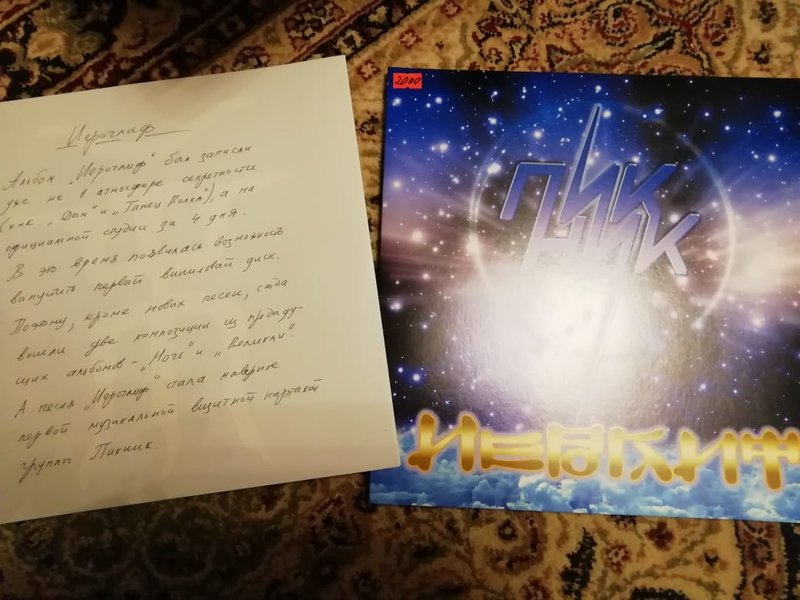 Иероглиф
Альбом „Иероглиф“ был записан
уже не в атмосфере секретности
(как „Дым“ и „Танец Волка“), а на
официальной студии за 4 дня.
В это время появилась возможность
выпустить первый виниловый диск.
Поэтому, кроме новых песен, сюда
вошли две композиции из предыду-
щих альбомов - „Ночь“ и „Великан“
А песня „Иероглиф“ стала наверное
первой музыкальной визитной карточкой
группы Пикник.
2000
ПИК
НИК
ИЕРОГЛИФ